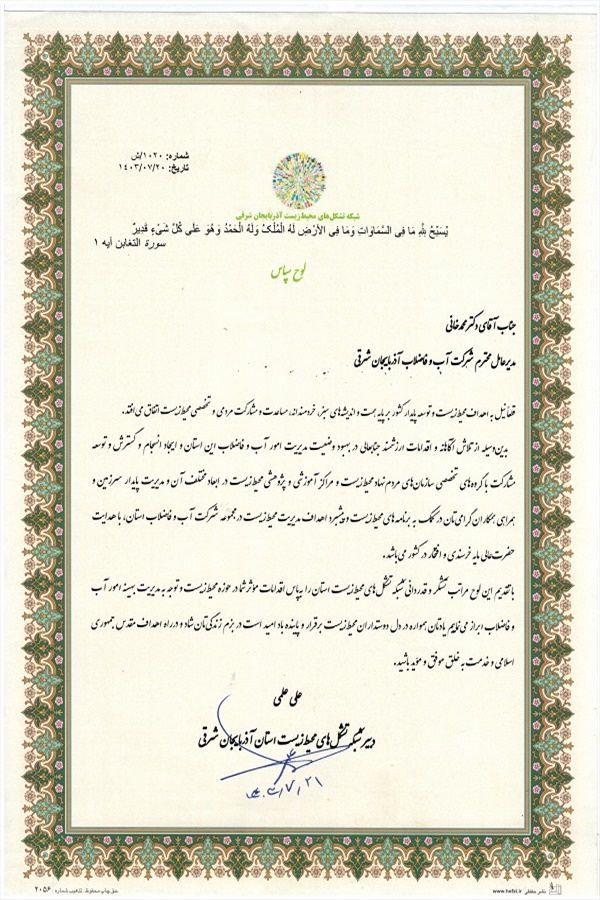 شماره: ۱۰۲۰/ش
تاریخ: ۱۴۰۳/۰۷/۲۰
شبکه تشکل‌های محیط زیست آذربایجان شرقی
یُسَبِّحُ لِلَّهِ مَا فِی السَّمَاوَاتِ وَمَا فِی الأَرْضِ لَهُ الْمُلْکُ وَلَهُ الْحَمْدُ وَهُوَ عَلَى کُلِّ شَیْءٍ قَدِیرٌ
سورة التغابن آیه ۱
لوح سپاس
جناب آقای دکتر محمدخانی
مدیرعامل محترم شرکت آب و فاضلاب آذربایجان شرقی
قطعا نیل به اهداف محیط زیست و توسعه پایدار کشور بر پایه همت و اندیشه‌های سبز، خردمندانه، مساعدت و مشارکت مردمی و تخصصی محیط زیست اتفاق می‌افتد.
بدین‌وسیله از تلاش آگاهانه و اقدامات ارزشمند جنابعالی در بهبود وضعیت مدیریت امور آب و فاضلاب این استان و ایجاد انسجام و گسترش و توسعه
مشارکت با گروه‌های تخصصی سازمان‌های مردم نهاد محیط زیست و مراکز آموزشی و پژوهشی محیط زیست در ابعاد مختلف آن و مدیریت پایدار سرزمین و
همراهی همکاران گرامی‌تان در کمک به برنامه‌های محیط زیست و پیشبرد اهداف مدیریت محیط زیست در مجموعه شرکت آب و فاضلاب استان، با هدایت
حضرت‌عالی مایه خرسندی و افتخار در کشور می‌باشد.
با تقدیم این لوح مراتب تشکر و قدردانی شبکه تشکل‌های محیط زیست استان را به پاس اقدامات مؤثر شما در حوزه محیط زیست و توجه به مدیریت بهینه امور آب
و فاضلاب ابراز می‌نمایم یادتان همواره در دل دوستداران محیط زیست برقرار و پاینده باد امید است در بزم زندگی‌تان شاد و در راه اهداف مقدس جمهوری
اسلامی و خدمت به خلق موفق و مؤید باشید.
علی علمی
دبیر شبکه تشکل‌های محیط زیست استان آذربایجان شرقی
۱۴۰۳/۷/۲۱
نشر حافظی www.hefzi.ir
حق چاپ محفوظ. تذهیب شماره: ۲۰۵۶